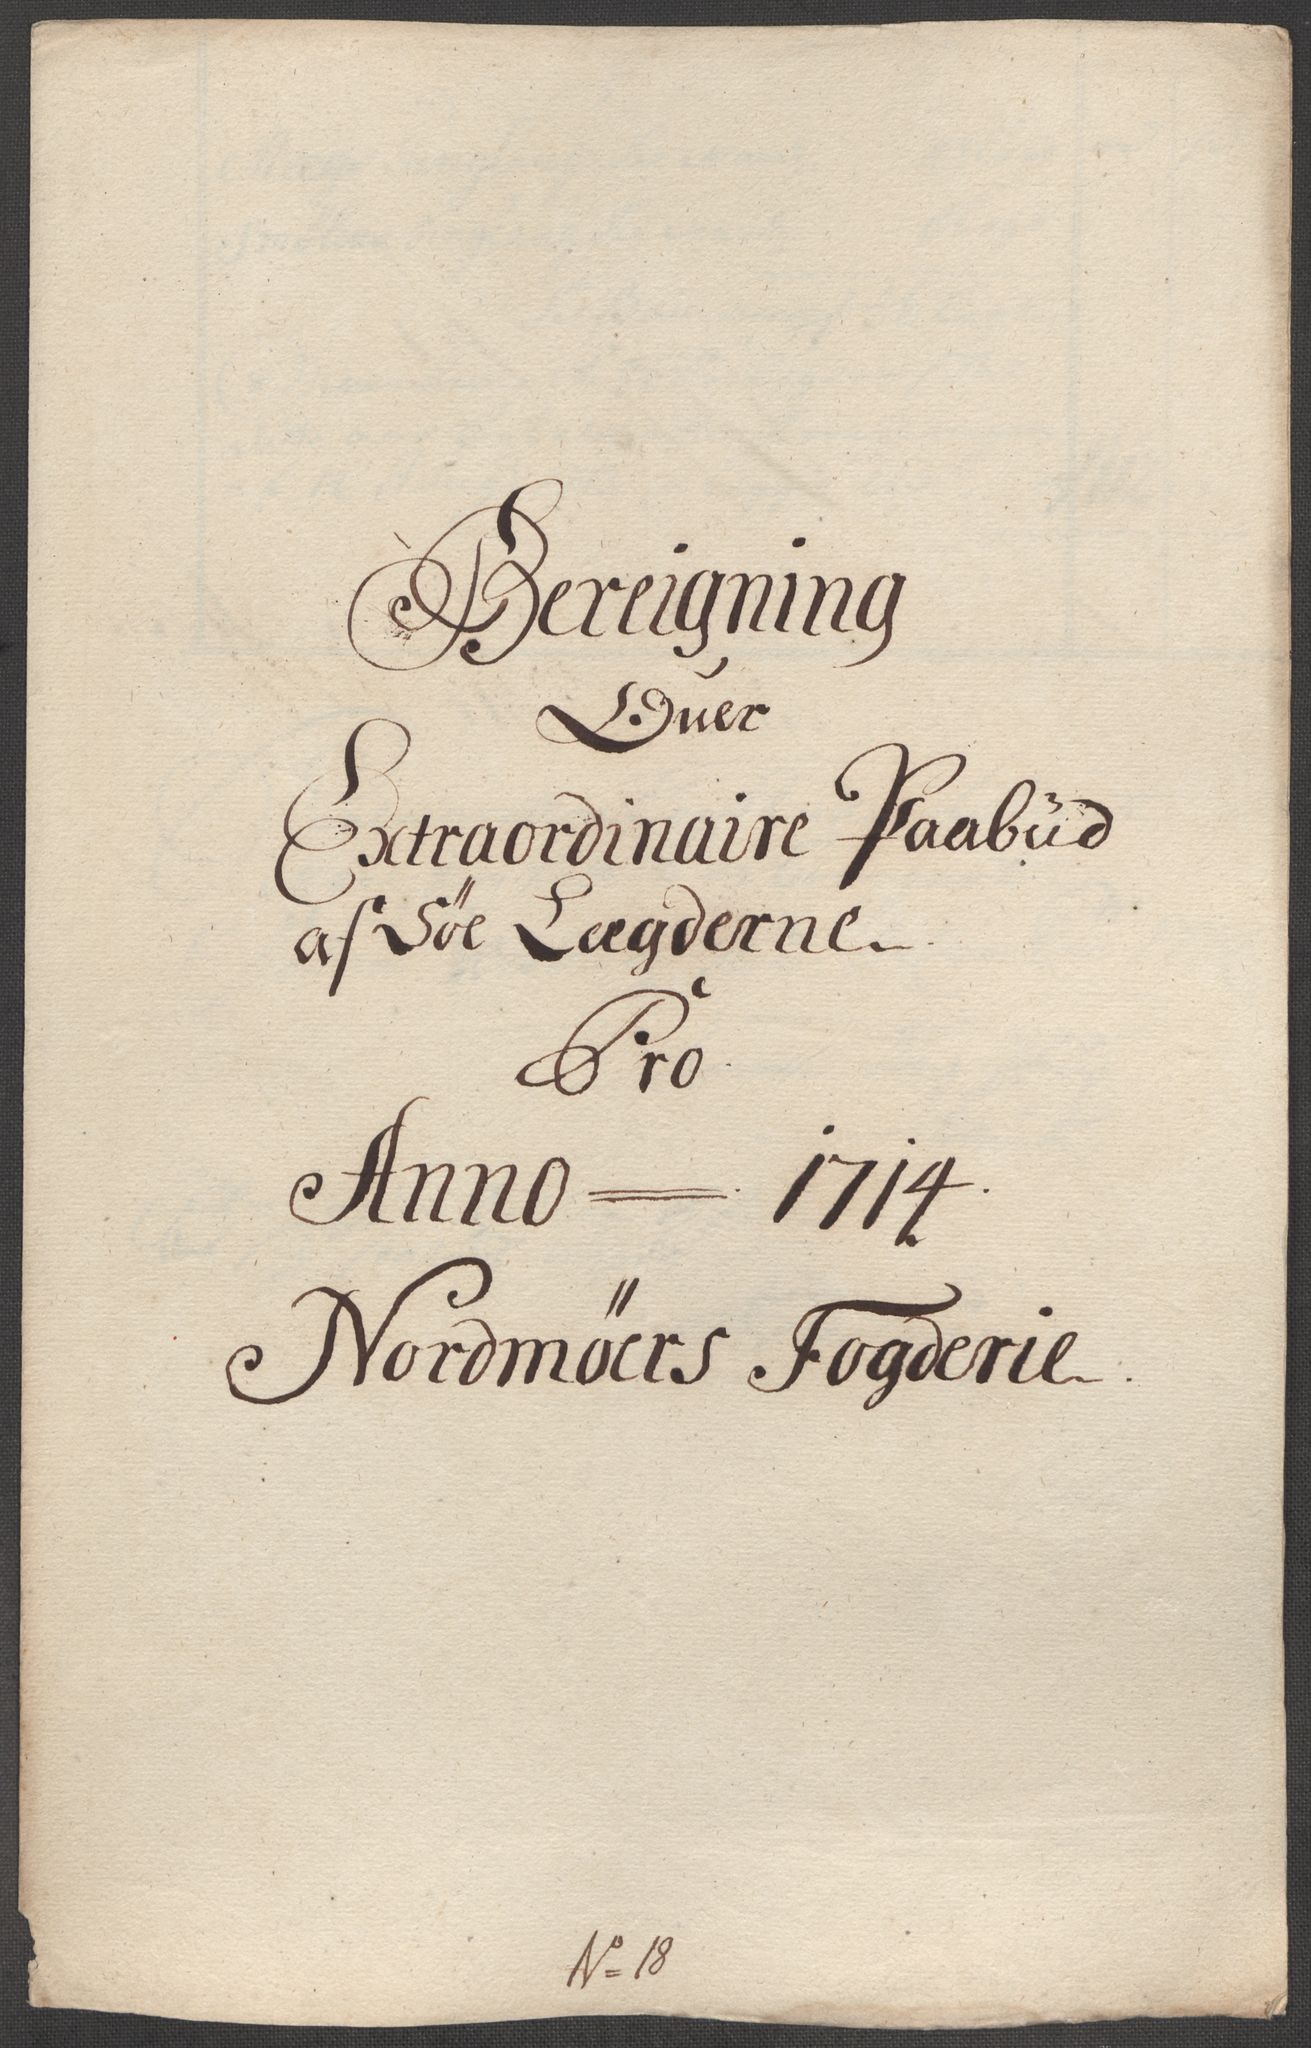 Bereigning
Ouer
Extraordinaire Paabüd
af Söe Lægderne
Pro
Anno 1714.
Nordmöers Fogderie.
No 18